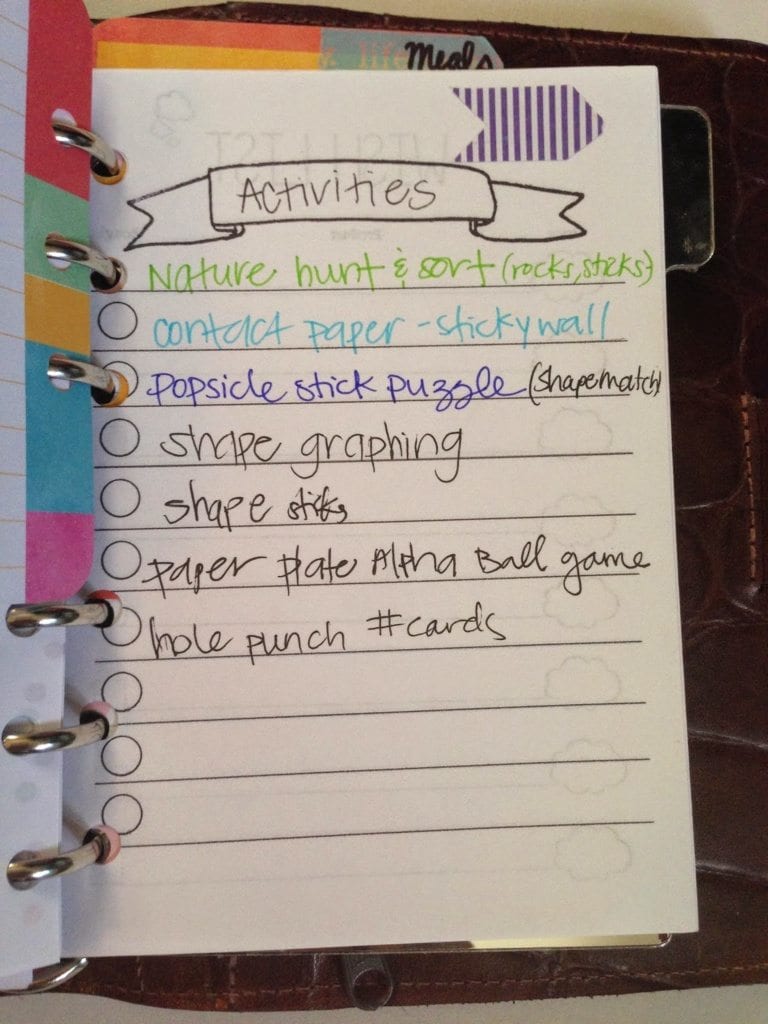 life
Meals
Activities
Nature hunt & sort (rocks, sticks)
contact paper - sticky wall
popsicle stick puzzle (shape match)
shape graphing
shape sticks
paper plate Alpha Ball game
hole punch #cards